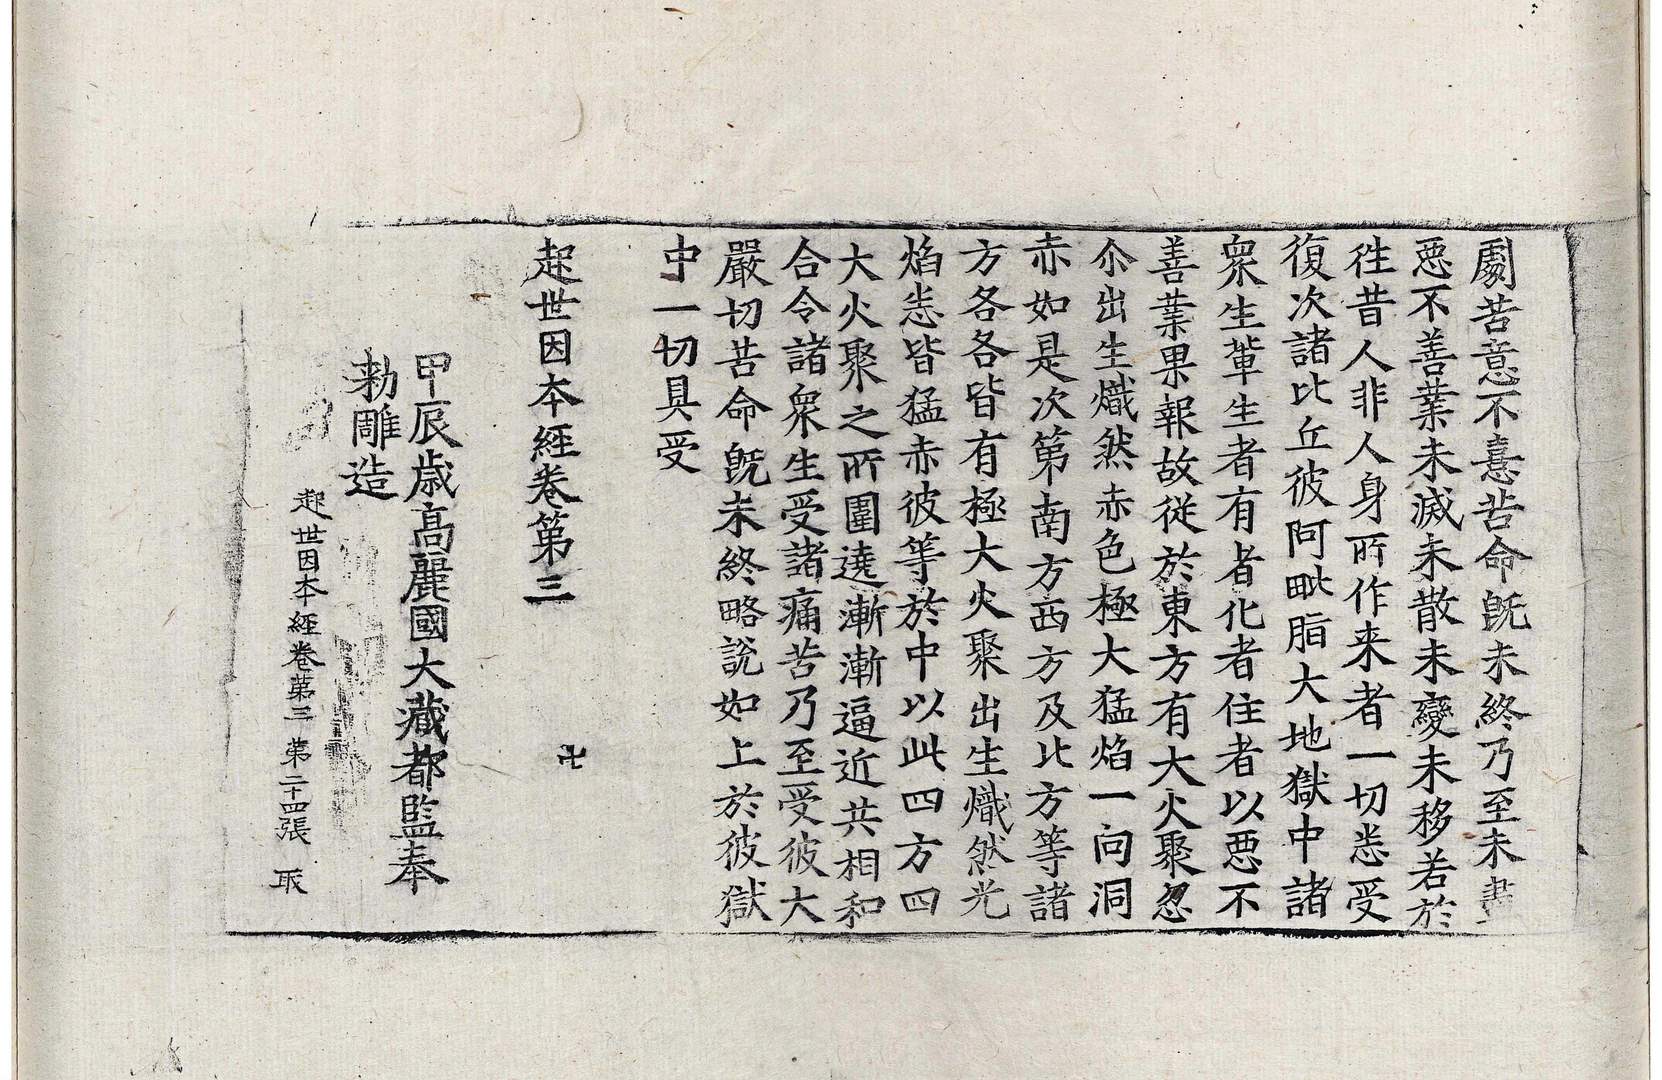 劇苦意不憙苦命旣未終乃至未盡
惡不善業未滅未散未變未移若於
徃昔人非人身所作来者一切悉受
復次諸比丘彼阿毗脂大地獄中諸
衆生軰生者有者化者住者以惡不
善業果報故從於東方有大火聚忽
尒出生熾然赤色極大猛焰一向洞
赤如是次第南方西方及北方等諸
方各各皆有極大火聚出生熾然光
焰悉皆猛赤彼等於中以此四方四
大火聚之所圍遶漸漸逼近共相和
合令諸衆生受諸痛苦乃至受彼大
嚴切苦命旣未終略說如上於彼獄
中一切具受
起世因本經卷第三 卍
甲辰歲高麗國大藏都監奉
勑雕造
起世因本經卷第三 第二十四張 取